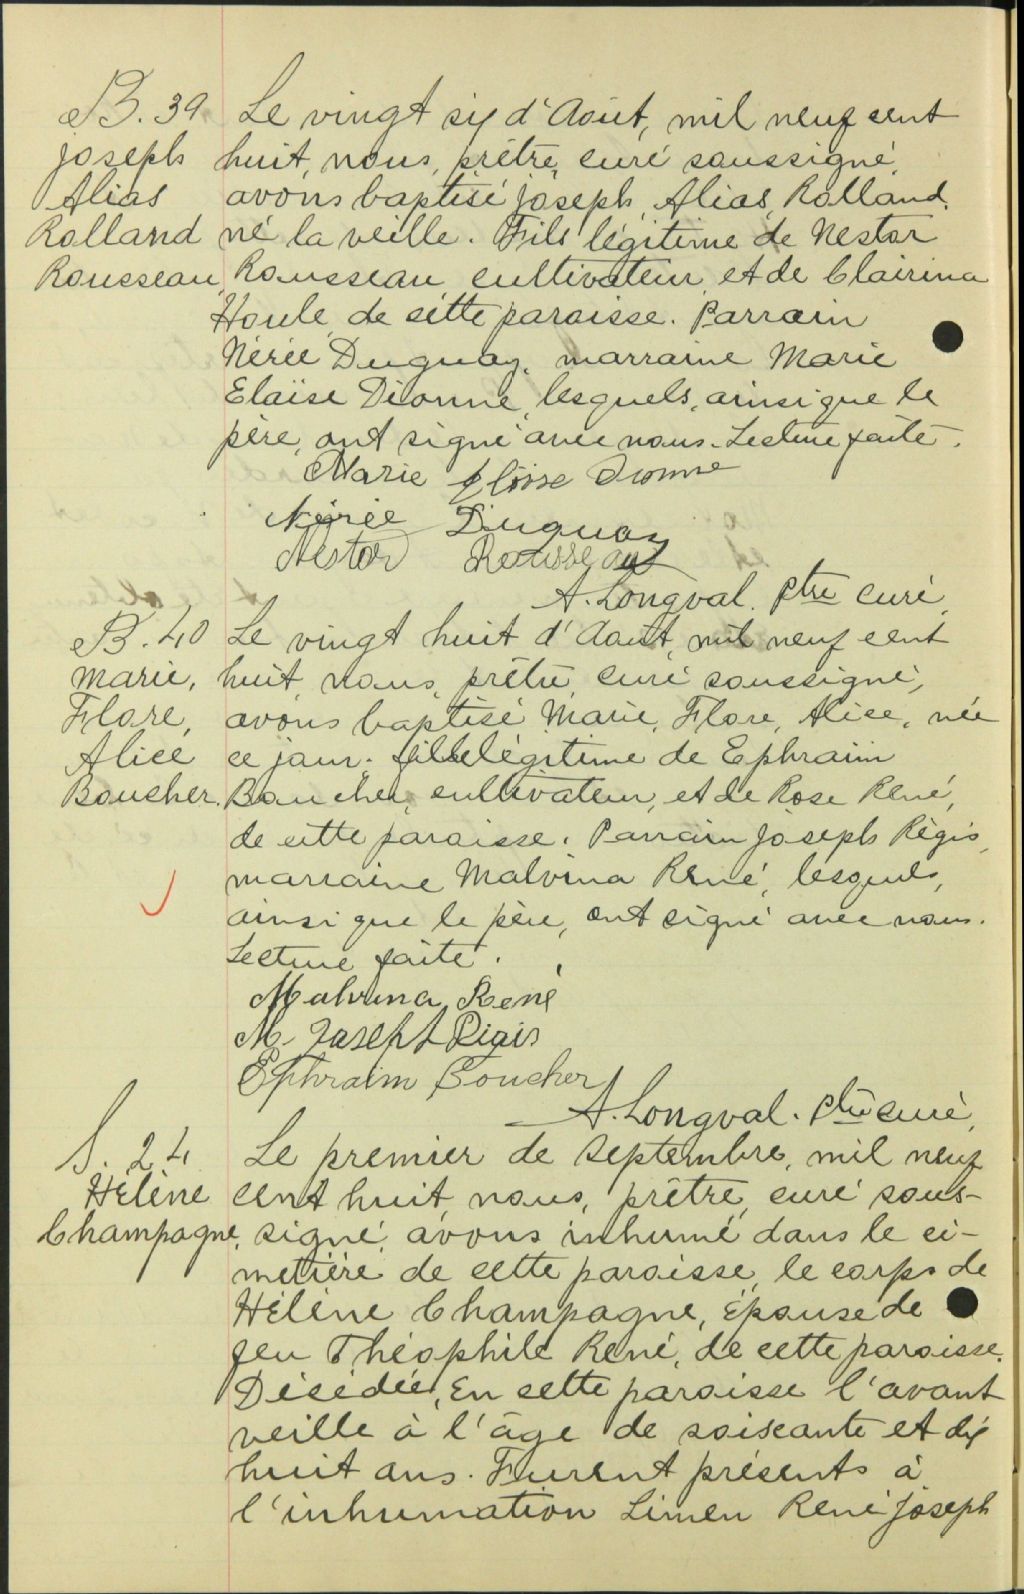 B. 39
Joseph
Alias
Rolland
Rousseau,
Le vingt six d'Août, mil neuf cent
huit, nous, prêtre, curé soussigné,
avons baptisé Joseph, Alias, Rolland,
né la veille. Fils légitime de Nestor
Rousseau cultivateur, et de Clairina
Houle, de cette paroisse. Parrain
Nérée Duguay, marraine Marie
Eloïse Dionne, lesquels, ainsi que le
père, ont signé avec nous. Lecture faite.
Marie Eloïse Dionne
Nérée Duguay
Nestor Rousseau
A. Longval. Ptre curé,
B. 40
Marie,
Flore,
Alice
Boucher.
Le vingt huit d'Août, mil neuf cent
huit, nous, prêtre, curé soussigné,
avons baptisé Marie, Flore, Alice, née
ce jour. fille légitime de Ephraim
Boucher, cultivateur, et de Rose René,
de cette paroisse. Parrain Joseph Régis,
marraine Malvina René, lesquels,
ainsi que le père, ont signé avec nous.
Lecture faite.
Malvina René
M. Joseph Régis
Ephraim Boucher
A. Longval. Ptre curé,
S. 24
Hélène
Champagne,
Le premier de Septembre, mil neuf
cent huit, nous, prêtre, curé sous-
signé, avons inhumé dans le ci-
metière de cette paroisse, le corps de
Hélène Champagne, Épouse de
feu Théophile René, de cette paroisse.
Décédée, En cette paroisse l'avant
veille à l'âge de soixante et dix
huit ans. Furent présents à
l'inhumation René Joseph